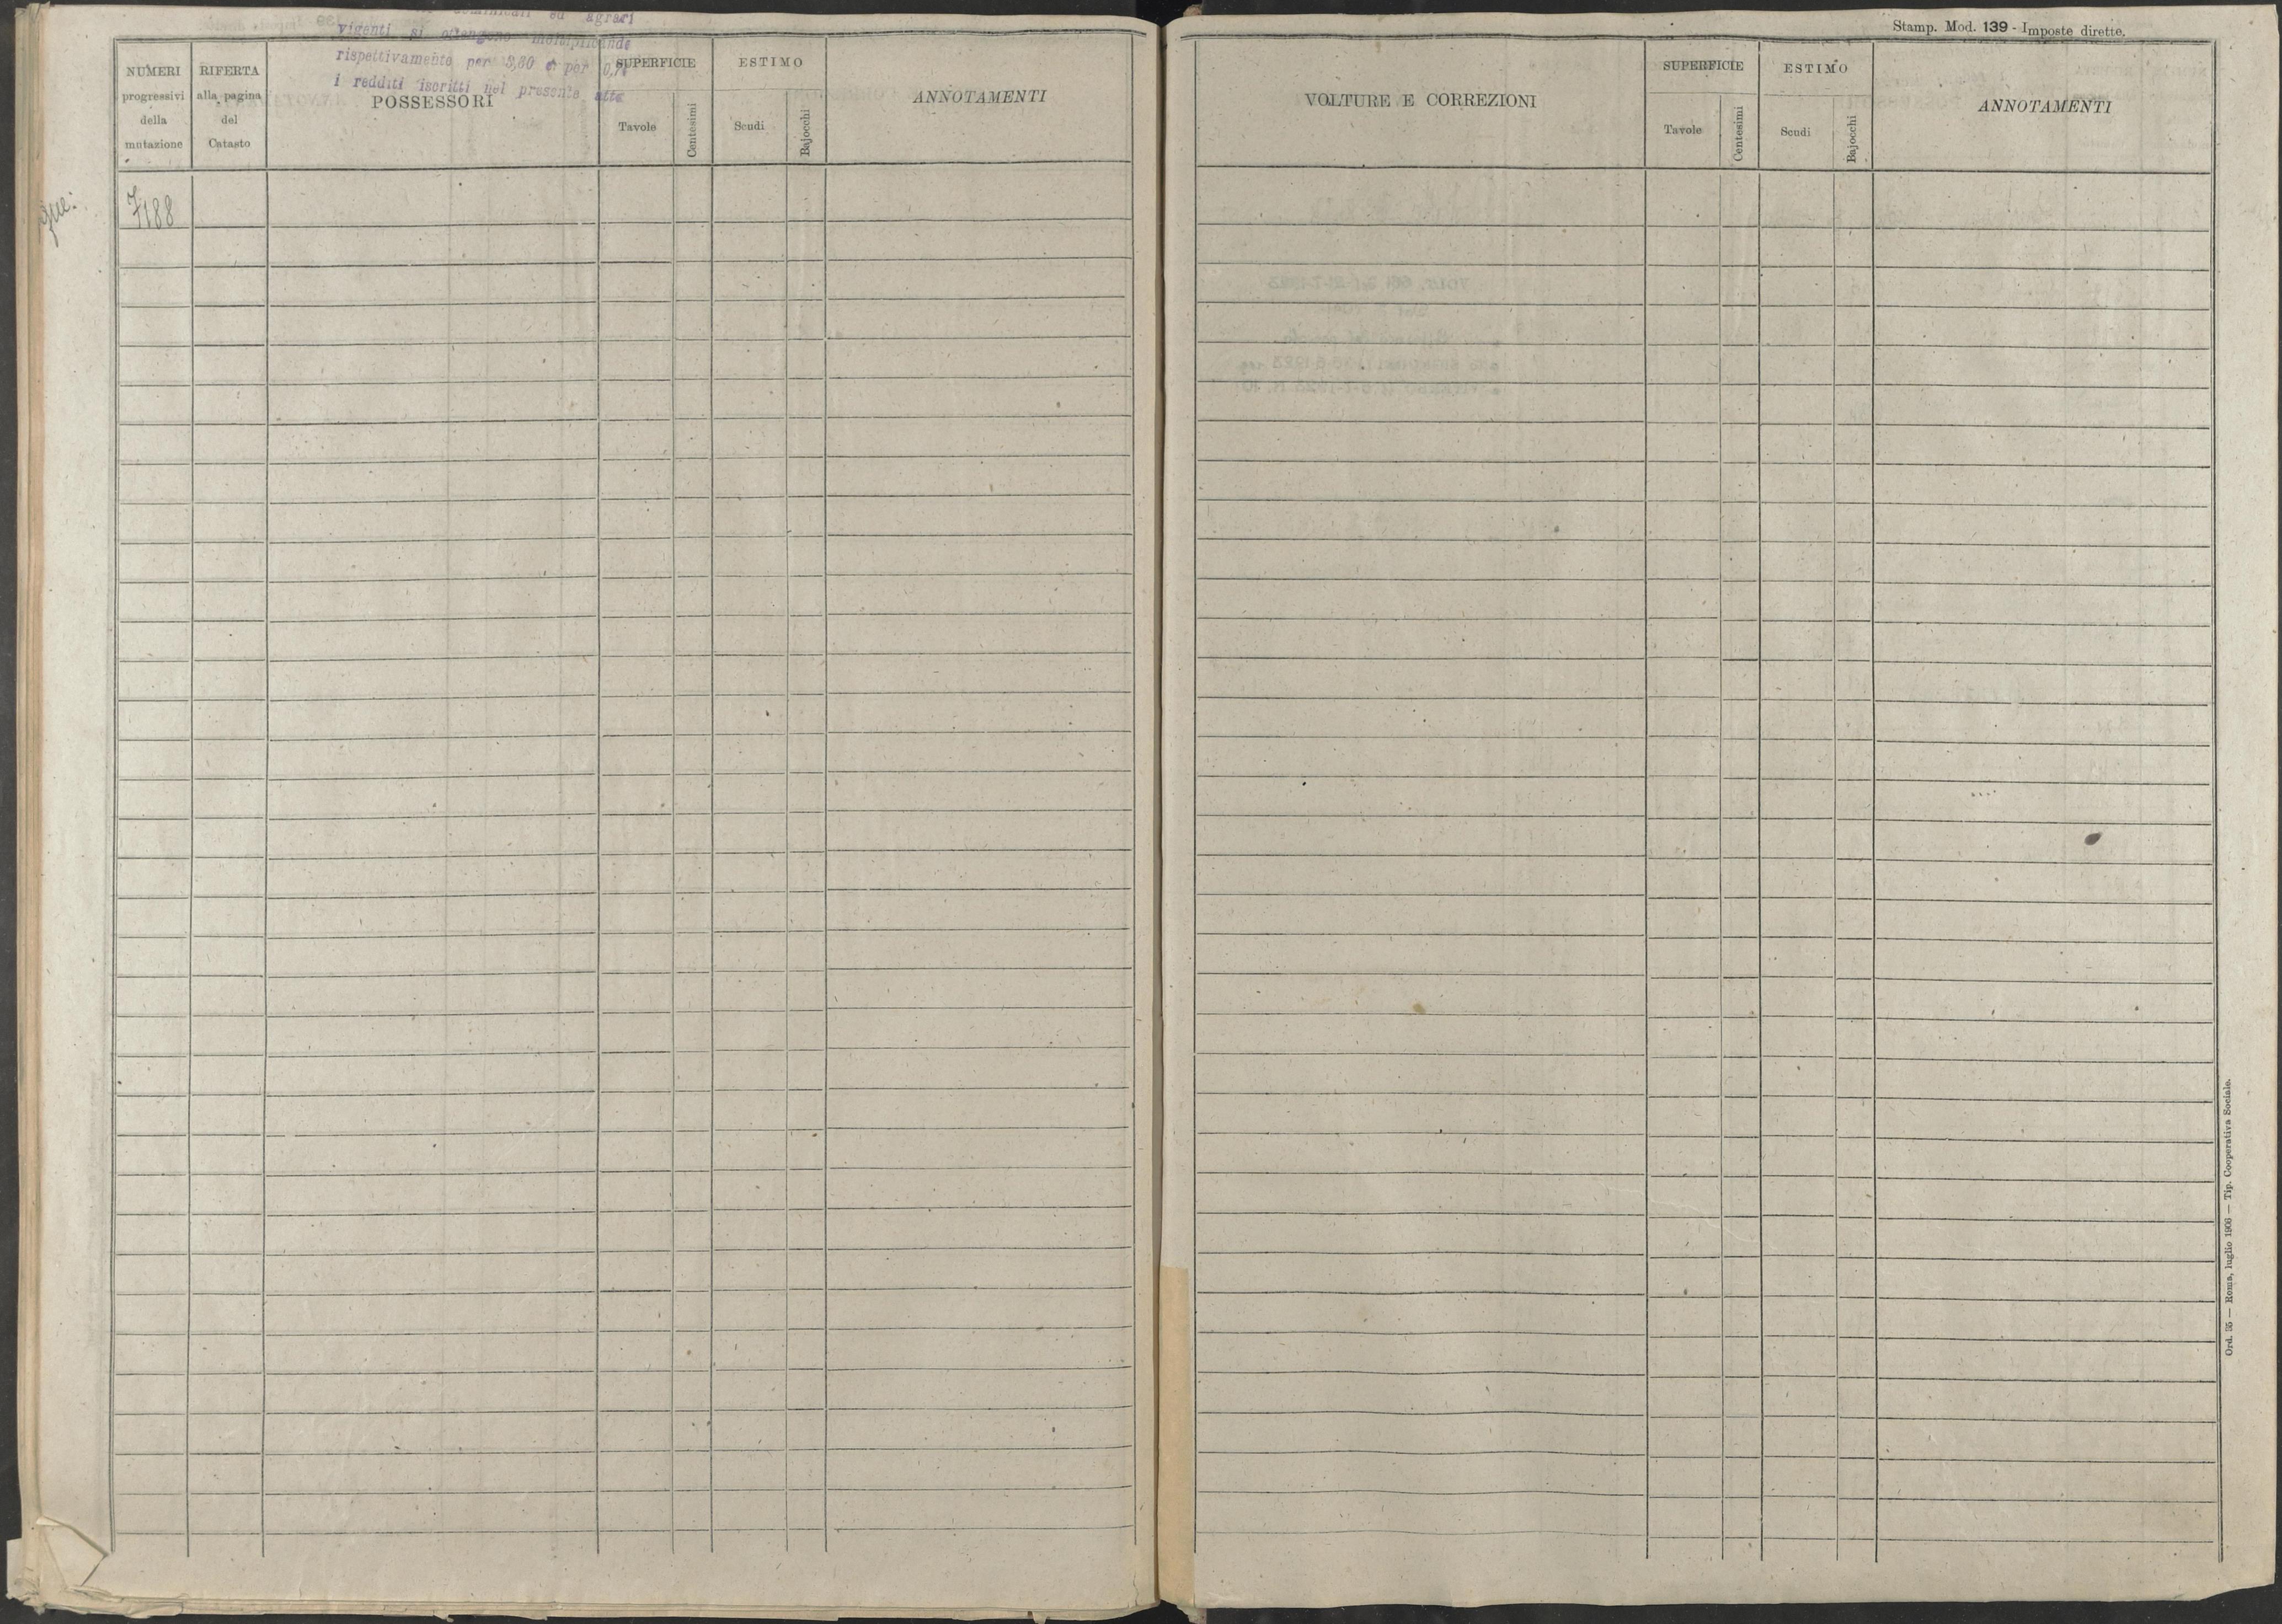 dominicali ed agrari
vigenti si ottengono moltiplicando
rispettivamente per 3,80 e per
i redditi iscritti nel presente atto
NUMERI
progressivi
della
mutazione
RIFERTA
alla pagina
del
Catasto
POSSESSORI
SUPERFICIE
Tavole
Centesimi
ESTIMO
Scudi
Bajocchi
ANNOTAMENTI
7188
Stamp. Mod. 139 - Imposte dirette.
VOLTURE E CORREZIONI
SUPERFICIE
Tavole
Centesimi
ESTIMO
Scudi
Bajocchi
ANNOTAMENTI
Ord. 35 — Roma, luglio 1906 — Tip. Cooperativa Sociale.